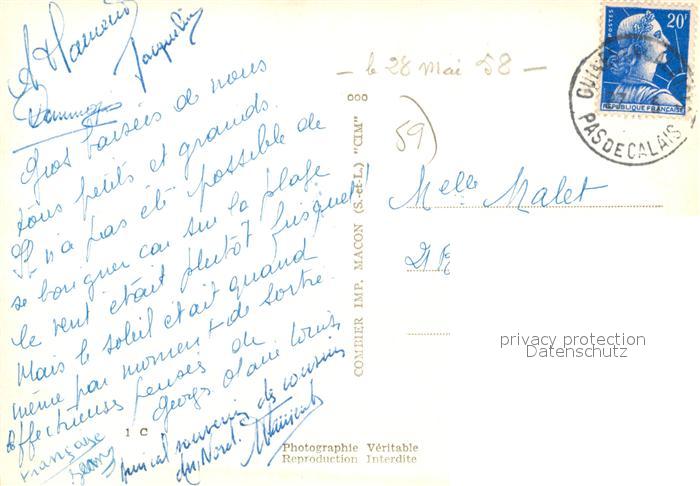 Jacqueline
Gros baisers de nous
tous petits et grands.
Il n'a pas été possible de
se baigner car sur la plage
le vent était plutôt frisquet!
Mais le soleil était quand
même par moment de sortie.
Affectueuses pensées de
Georges Marie Louis
Amical souvenir des cousins
du Nord.
Française
1 C
Photographie Véritable
Reproduction Interdite
COMBIER IMP. MACON (S.-et-L.) "CIM"
— le 28 Mai 58 —
59
Melle Malet
POSTES
20F
REPUBLIQUE FRANÇAISE
PAS DE CALAIS
privacy protection
Datenschutz